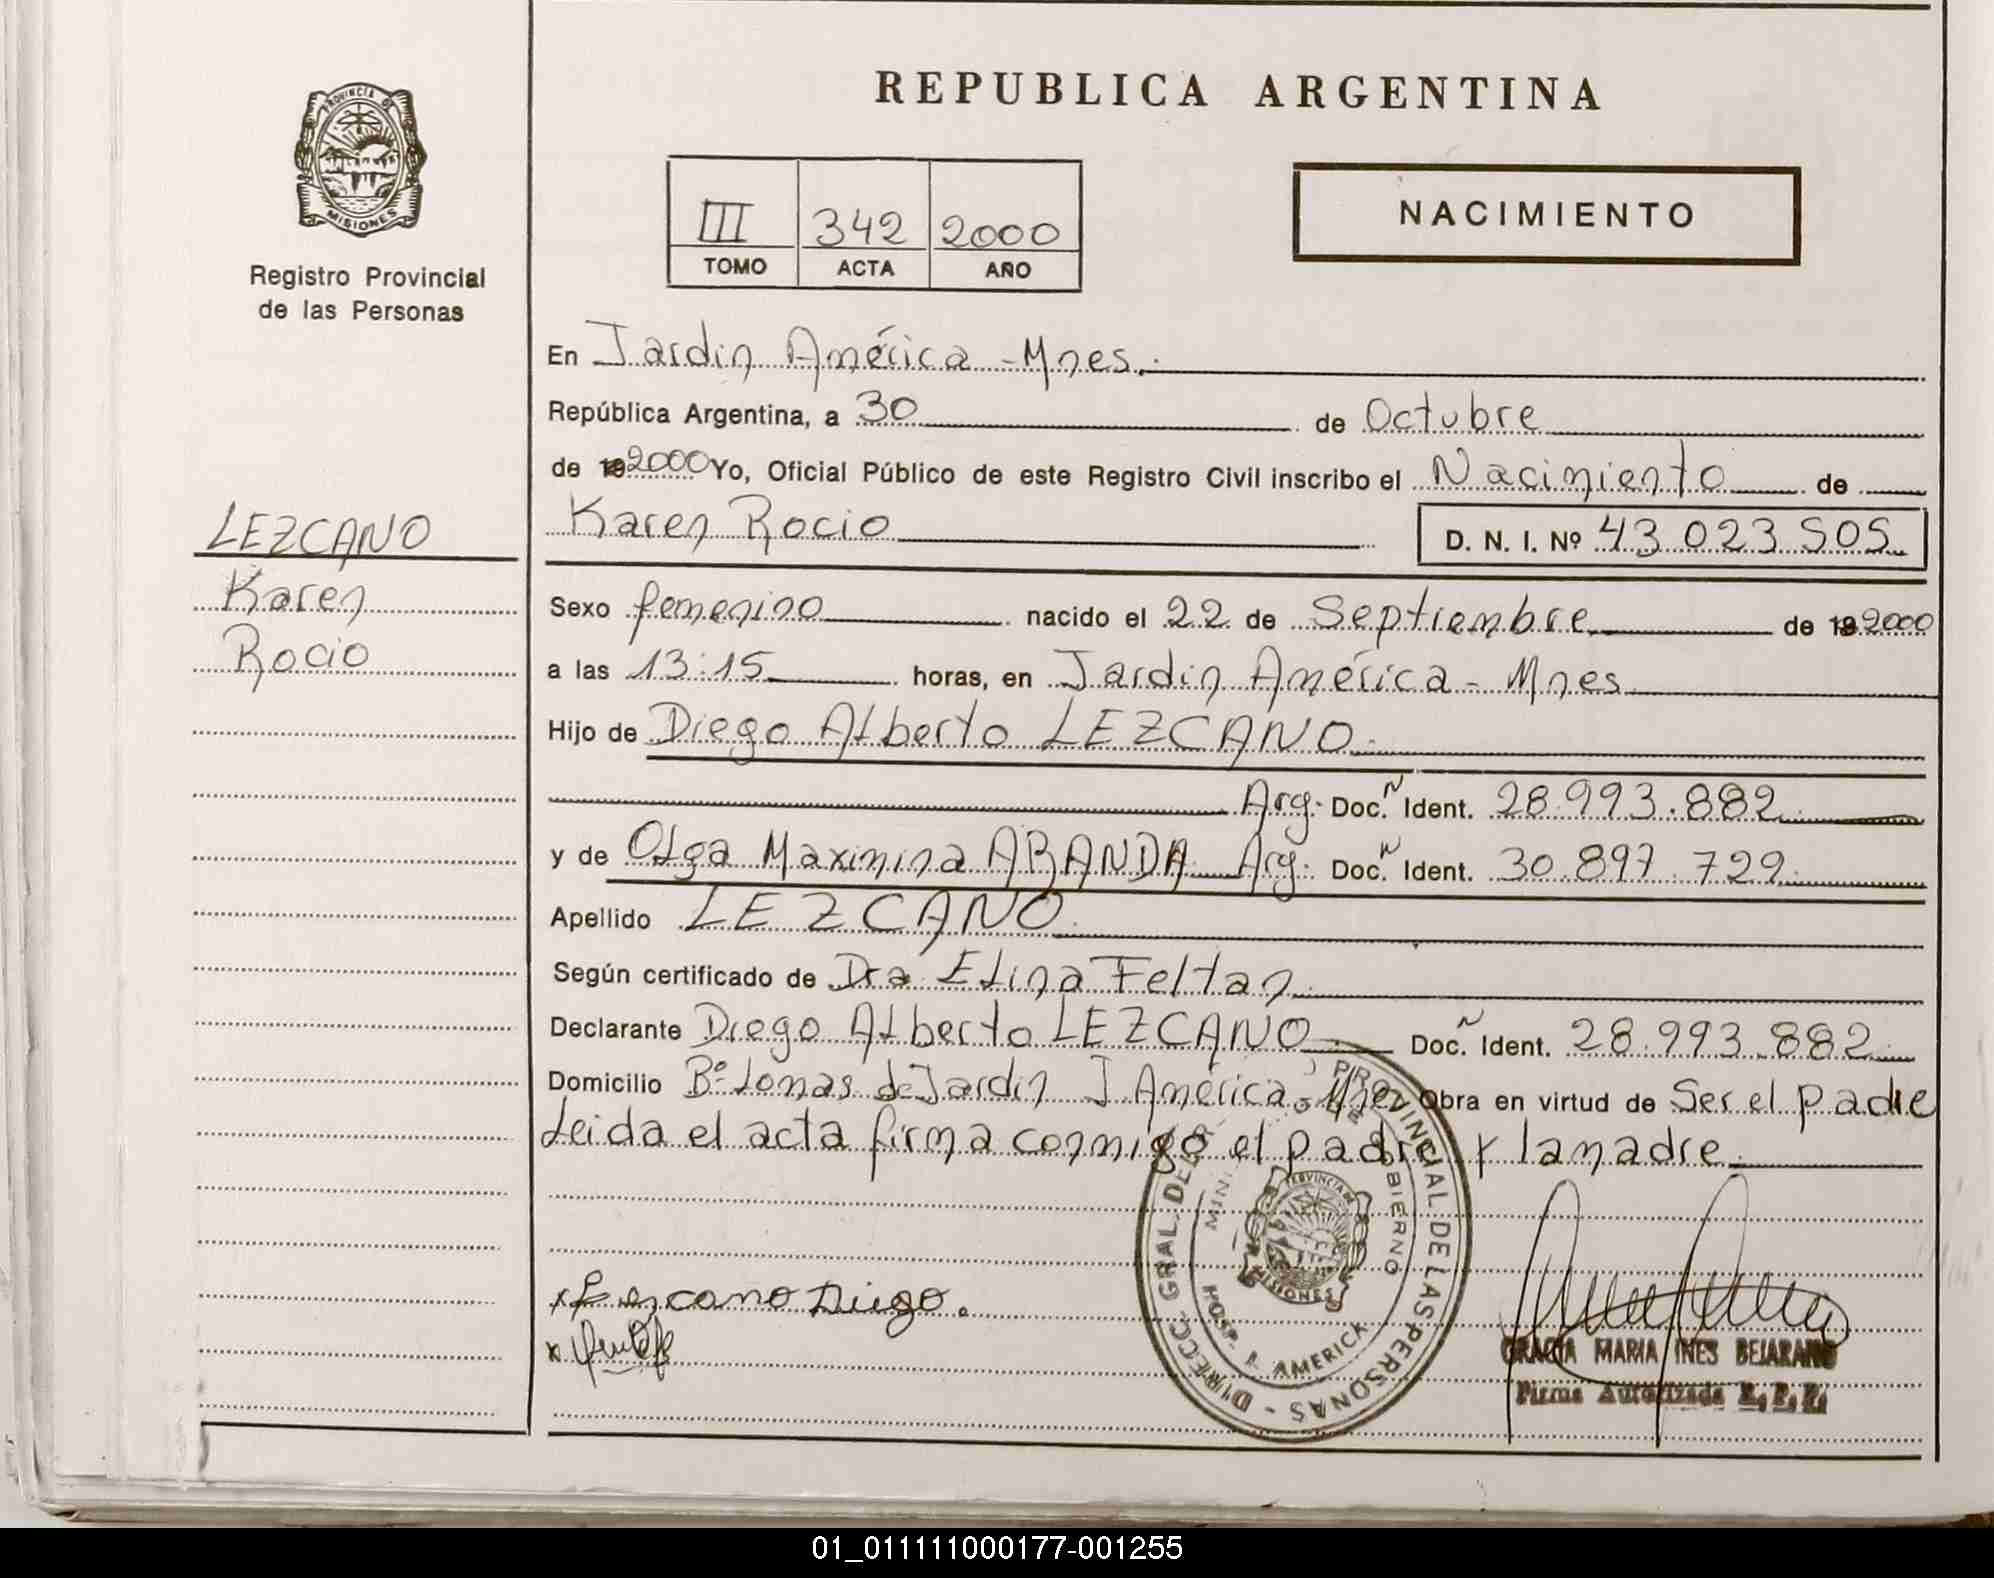 REPUBLICA ARGENTINA
PROVINCIA DE
MISIONES
Registro Provincial
de las Personas
III 342 2000
TOMO ACTA AÑO
NACIMIENTO
En Jardin América - Mnes.
República Argentina, a 30 de Octubre
de 192000 Yo, Oficial Público de este Registro Civil inscribo el Nacimiento de
Karen Rocio D. N. I. Nº 43 023 505
LEZCANO
Karen
Rocio
Sexo femenino nacido el 22 de Septiembre de 192000
a las 13:15 horas, en Jardin América - Mnes
Hijo de Diego Alberto LEZCANO
Arg. Doc. N Ident. 28.993.882
y de Olga Maximina ARANDA Arg. Doc. N Ident. 30.897.729
Apellido LEZCANO
Según certificado de Dra Elina Feltan
Declarante Diego Alberto LEZCANO Doc. N Ident. 28.993.882
Domicilio Bº Lomas de Jardin J América, Mnes Obra en virtud de Ser el padre
Leida el acta firma conmigo el padre y la madre
DIRECC. GRAL. DEL R. PROVINCIAL DE LAS PERSONAS
MINI. BIERNO
PROVINCIA DE
MISIONES
HOSP. J. AMERICA
x Lezcano Diego.
GRACIA MARIA INES BEJARANO
Firma Autorizada R. P. P.
01_011111000177-001255